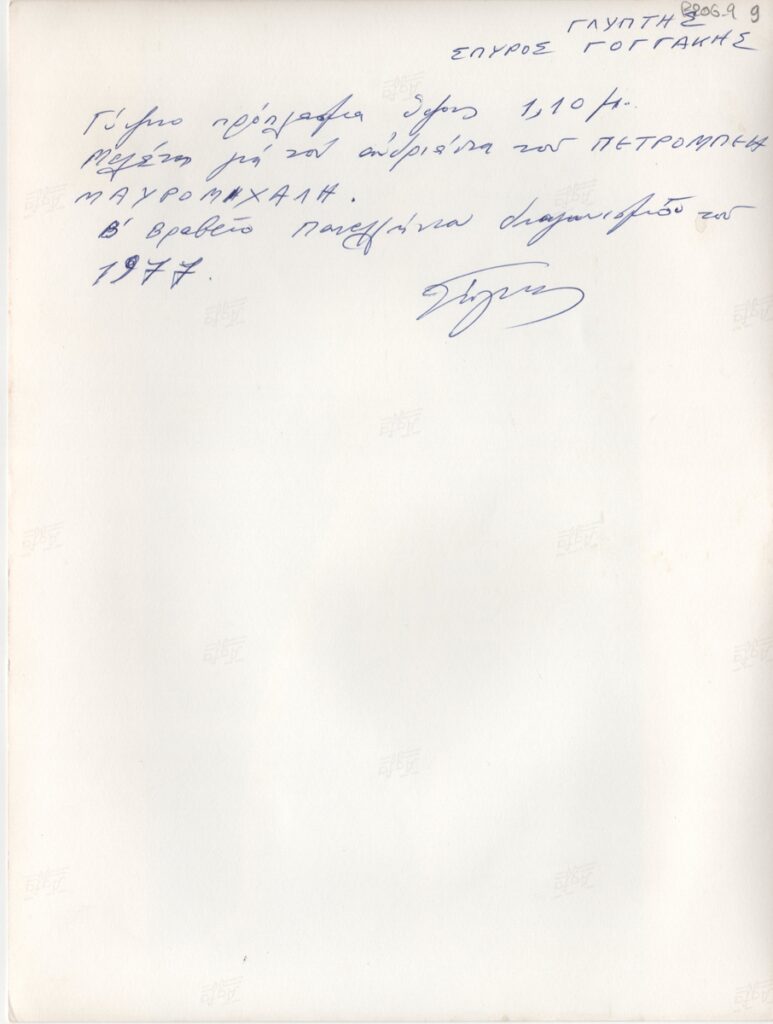 B206-9 9
ΓΛΥΠΤΗΣ
ΣΠΥΡΟΣ ΓΟΓΓΑΚΗΣ
Γύψινο πρόπλασμα ύψους 1,10 μ.
Μελέτη γιά τον ανδριάντα του ΠΕΤΡΟΜΠΕΗ
ΜΑΥΡΟΜΙΧΑΛΗ.
Β' Βραβείο Πανελλήνιου διαγωνισμού του
1977.